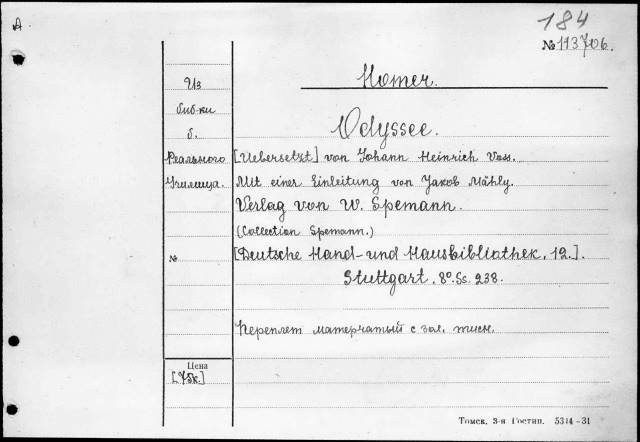 A
184
№ 113706.
Homer.
Из
биб-ки
б.
Реального
Училища.
Odyssee.
[Uebersetzt] von Johann Heinrich Voss.
Mit einer Einleitung von Jakob Mähly.
Verlag von W. Spemann.
(Collection Spemann.)
№
[Deutsche Hand- und Hausbibliothek, 12.].
Stuttgart. 8º. Ss. 238.
Переплет матерчатый с зол. тисн.
Цена
[75к.]
Томск, 3-я Гостип. 5314-31